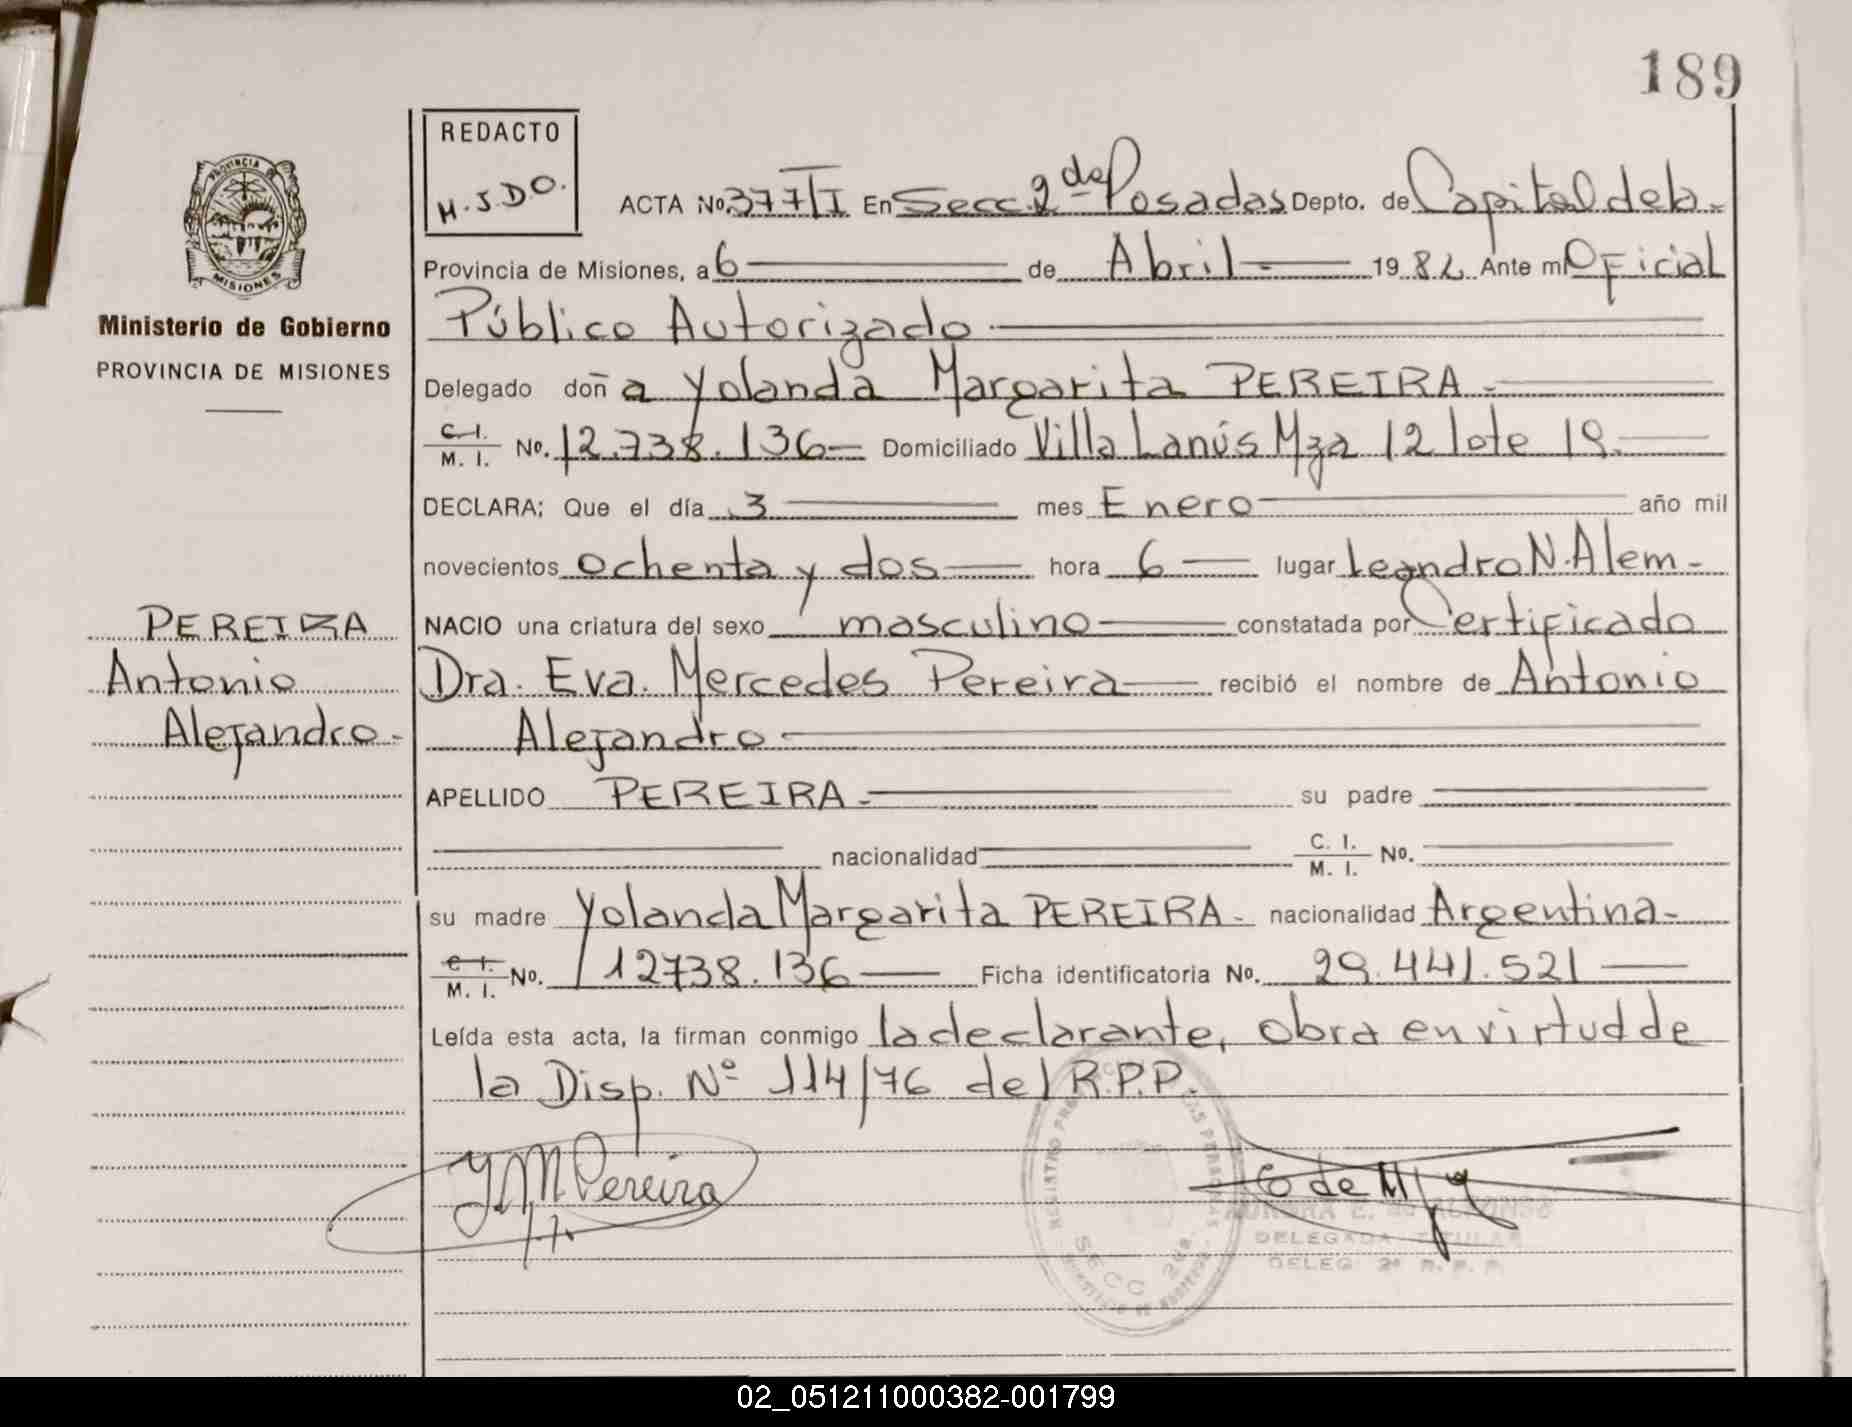 189
REDACTO
M.J.D.O.
PROVINCIA
MISIONES
Ministerio de Gobierno
PROVINCIA DE MISIONES
ACTA No. 377/I En Secc. 2da Posadas Depto. de Capital de la
Provincia de Misiones, a 6 de Abril 1982 Ante mí Oficial
Público Autorizado
Delegado doña Yolanda Margarita PEREIRA
C. I.
M. I. No. 12.738.136 Domiciliado Villa Lanús Mza 12 lote 19.
DECLARA; Que el día 3 mes Enero año mil
novecientos ochenta y dos hora 6 lugar Leandro N. Alem
PEREIRA
Antonio
Alejandro
NACIO una criatura del sexo masculino constatada por Certificado
Dra. Eva. Mercedes Pereira recibió el nombre de Antonio
Alejandro
APELLIDO PEREIRA su padre
nacionalidad C. I.
M. I. No.
su madre Yolanda Margarita PEREIRA nacionalidad Argentina
C. I.
M. I. No. 12738.136 Ficha identificatoria No. 29.441.521
Leída esta acta, la firman conmigo la declarante, obra en virtud de
la Disp. Nº 114/76 del R.P.P.
Y M Pereira
SECC 2da.
DELEGADA TITULAR
DELEG 2ª R. P. P.
02_051211000382-001799